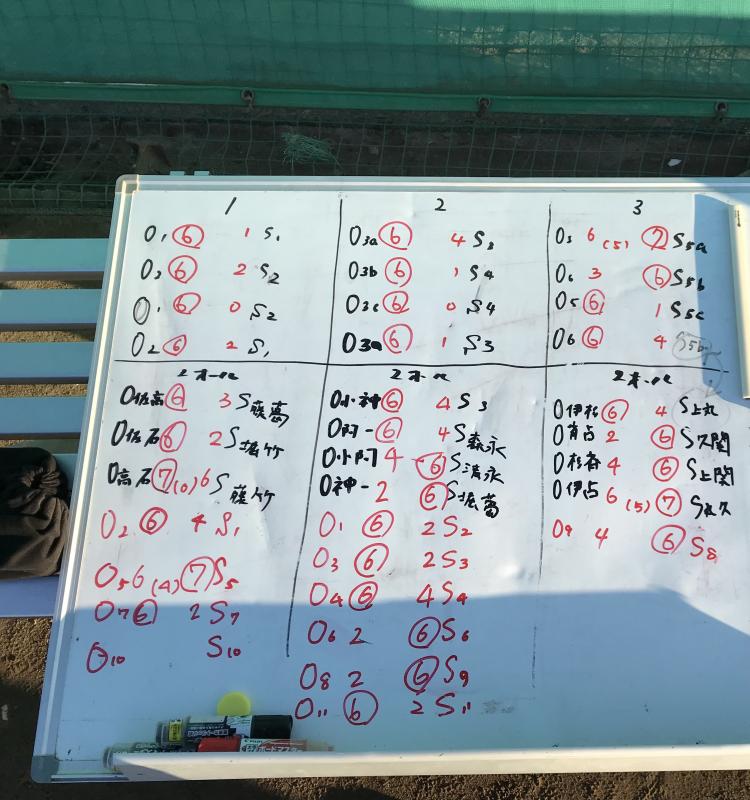 1
O1 6 1 S1
O2 6 2 S2
O1 6 0 S2
O2 6 2 S1
2オールド
O佐高 6 3 S藤葛
O佐石 6 2 S堀竹
O高石 7 (0) 6 S藤竹
O2 6 4 S1
O5 6 (4) 7 S5
O7 6 2 S7
O10 S10
2
O3a 6 4 S3
O3b 6 1 S4
O3c 6 0 S4
O3a 6 1 S3
2オール
O小神 6 4 S3
O阿一 6 4 S森永
O小阿 4 6 S清永
O神一 2 6 S堀葛
O1 6 2 S2
O3 6 2 S3
O4 6 4 S4
O6 2 6 S6
O8 2 6 S9
O11 6 2 S11
3
O5 6 (5) 7 S5a
O6 3 6 S5b
O5 6 1 S5c
O6 6 4 S5b
2オール
O伊杉 6 4 S上丸
O肯占 2 6 S久関
O杉谷 4 6 S上関
O伊占 6 (5) 7 S丸久
O9 4 6 S8
ボードマスター